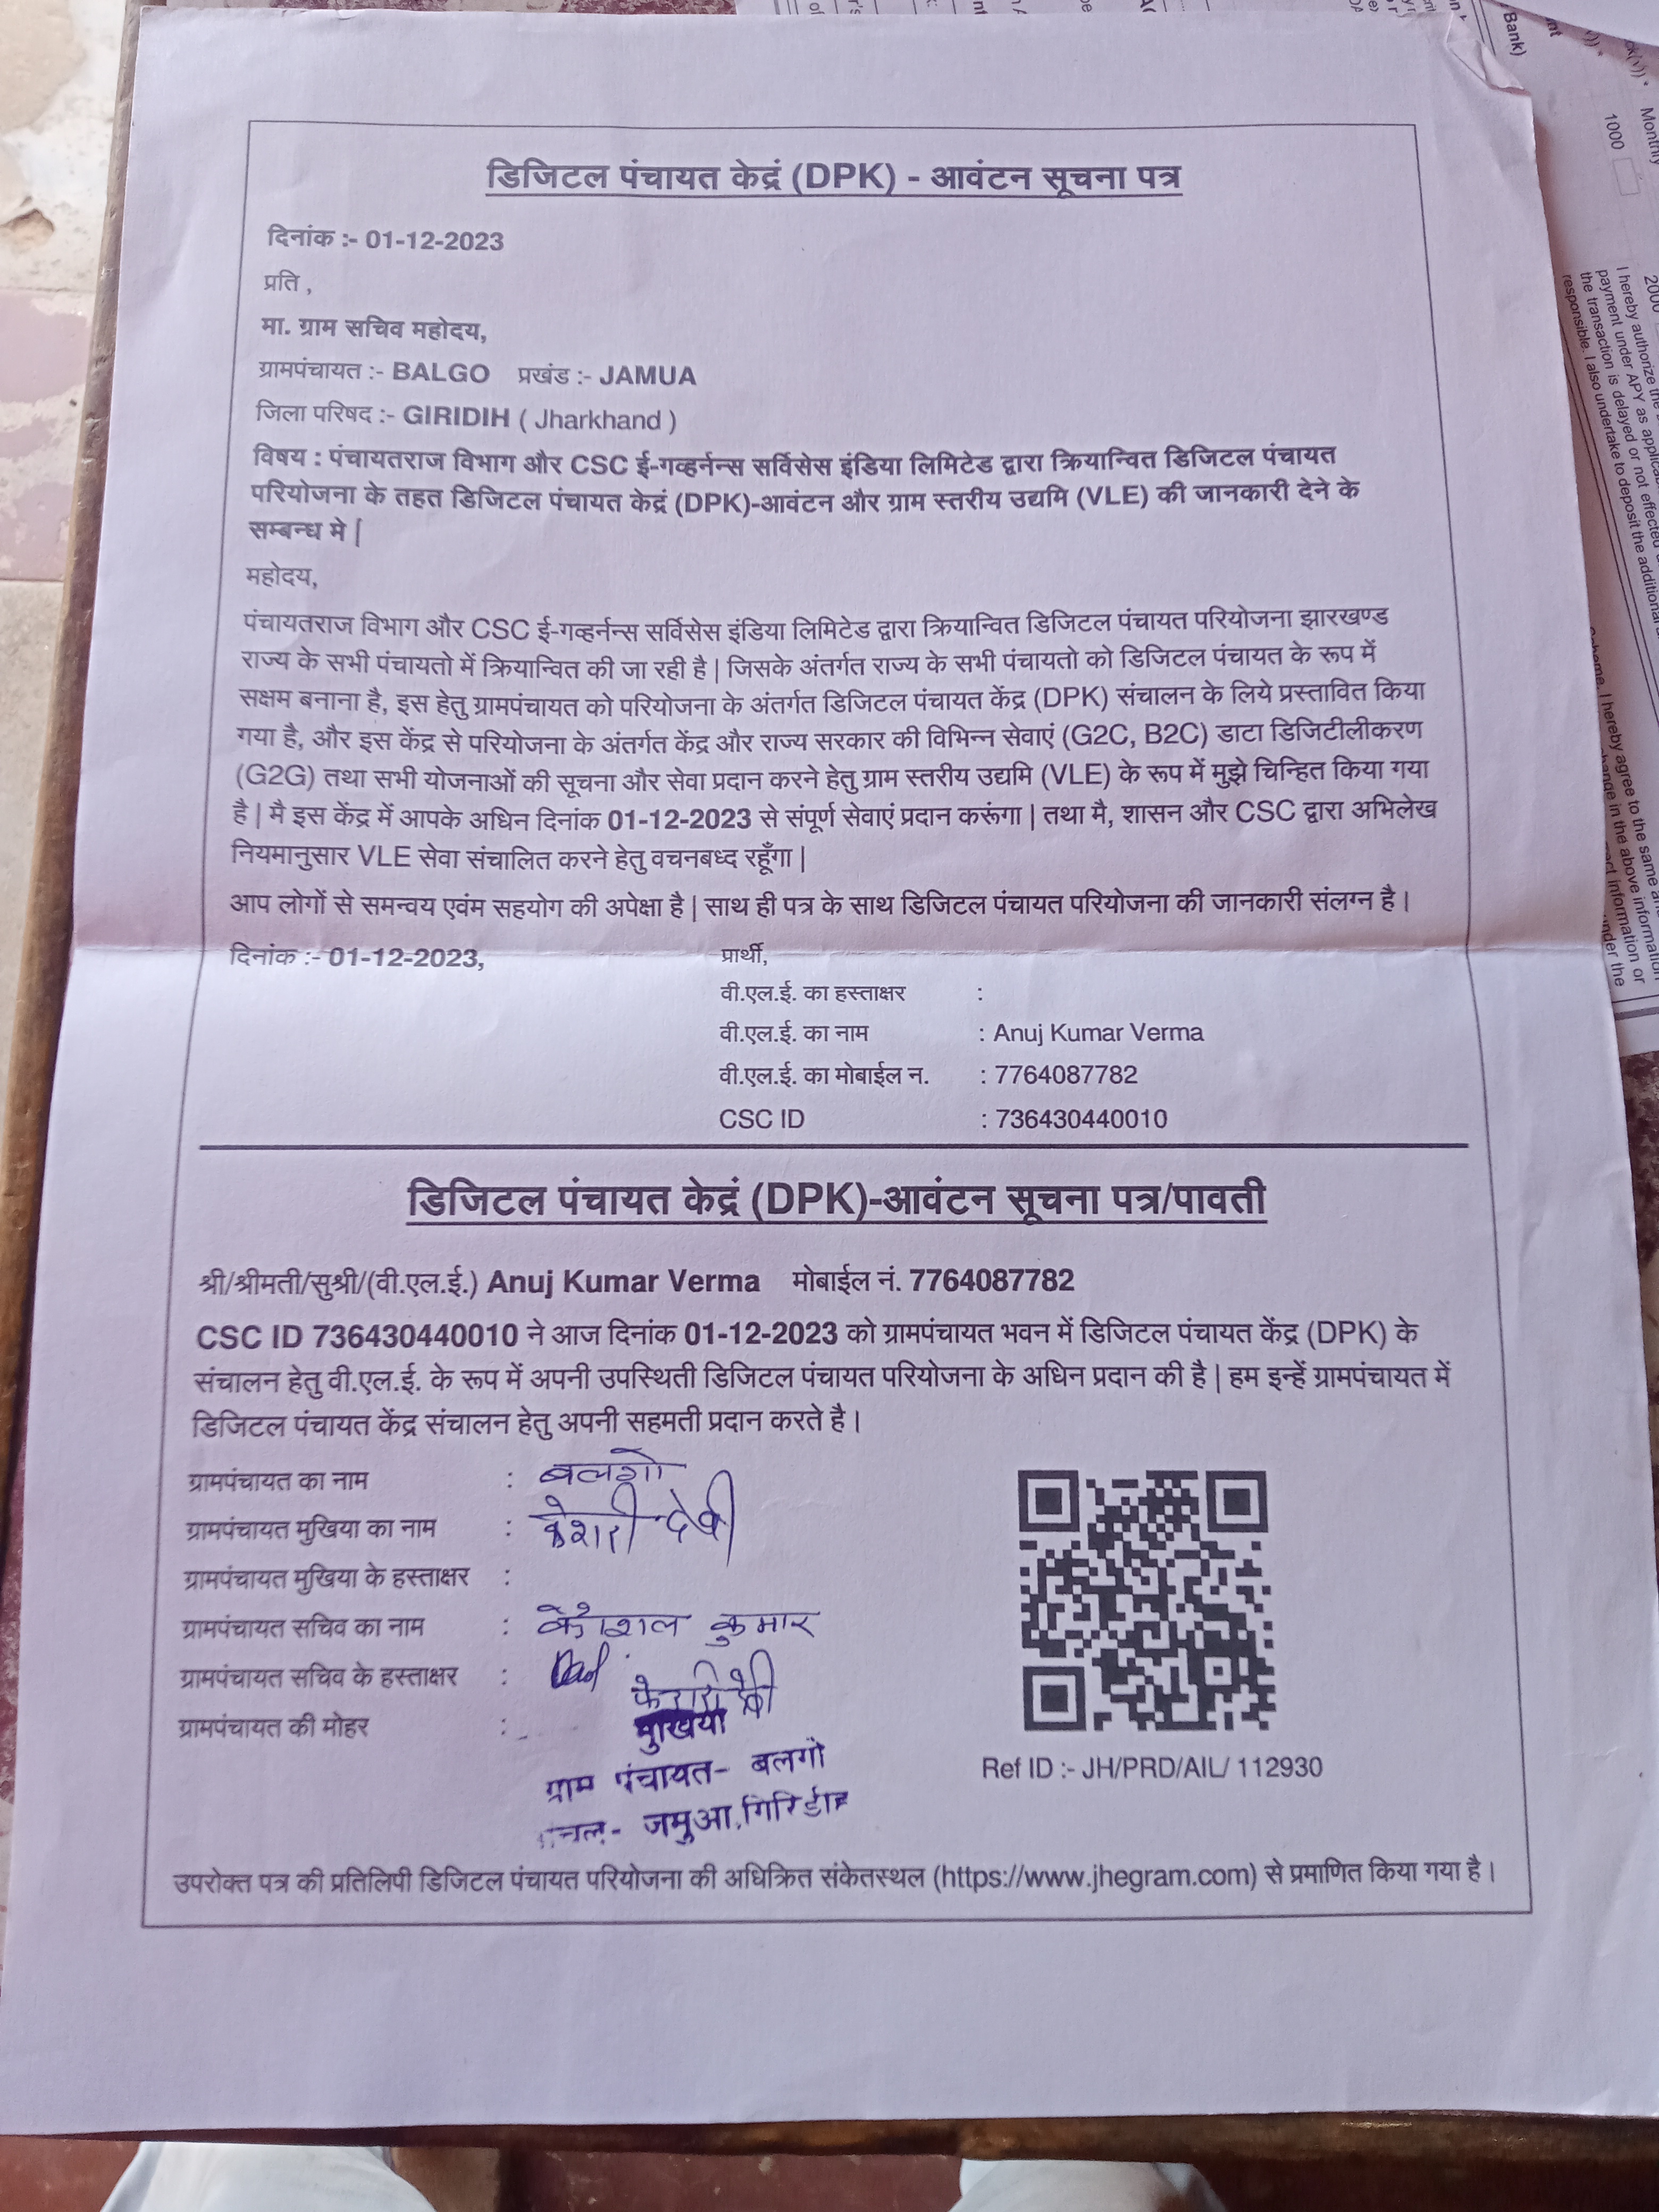 डिजिटल पंचायत केद्रं (DPK) - आवंटन सूचना पत्र
दिनांक :- 01-12-2023
प्रति ,
मा. ग्राम सचिव महोदय,
ग्रामपंचायत :- BALGO प्रखंड :- JAMUA
जिला परिषद :- GIRIDIH ( Jharkhand )
विषय : पंचायतराज विभाग और CSC ई-गव्हर्नन्स सर्विसेस इंडिया लिमिटेड द्वारा क्रियान्वित डिजिटल पंचायत
परियोजना के तहत डिजिटल पंचायत केद्रं (DPK)-आवंटन और ग्राम स्तरीय उद्यमि (VLE) की जानकारी देने के
सम्बन्ध मे |
महोदय,
पंचायतराज विभाग और CSC ई-गव्हर्नन्स सर्विसेस इंडिया लिमिटेड द्वारा क्रियान्वित डिजिटल पंचायत परियोजना झारखण्ड
राज्य के सभी पंचायतो में क्रियान्वित की जा रही है | जिसके अंतर्गत राज्य के सभी पंचायतो को डिजिटल पंचायत के रूप में
सक्षम बनाना है, इस हेतु ग्रामपंचायत को परियोजना के अंतर्गत डिजिटल पंचायत केंद्र (DPK) संचालन के लिये प्रस्तावित किया
गया है, और इस केंद्र से परियोजना के अंतर्गत केंद्र और राज्य सरकार की विभिन्न सेवाएं (G2C, B2C) डाटा डिजिटीलीकरण
(G2G) तथा सभी योजनाओं की सूचना और सेवा प्रदान करने हेतु ग्राम स्तरीय उद्यमि (VLE) के रूप में मुझे चिन्हित किया गया
है | मै इस केंद्र में आपके अधिन दिनांक 01-12-2023 से संपूर्ण सेवाएं प्रदान करूंगा | तथा मै, शासन और CSC द्वारा अभिलेख
नियमानुसार VLE सेवा संचालित करने हेतु वचनबध्द रहूँगा |
आप लोगों से समन्वय एवंम सहयोग की अपेक्षा है | साथ ही पत्र के साथ डिजिटल पंचायत परियोजना की जानकारी संलग्न है ।
दिनांक :- 01-12-2023,
प्रार्थी,
वी.एल.ई. का हस्ताक्षर :
वी.एल.ई. का नाम : Anuj Kumar Verma
वी.एल.ई. का मोबाईल न. : 7764087782
CSC ID : 736430440010
डिजिटल पंचायत केद्रं (DPK)-आवंटन सूचना पत्र/पावती
श्री/श्रीमती/सुश्री/(वी.एल.ई.) Anuj Kumar Verma मोबाईल नं. 7764087782
CSC ID 736430440010 ने आज दिनांक 01-12-2023 को ग्रामपंचायत भवन में डिजिटल पंचायत केंद्र (DPK) के
संचालन हेतु वी.एल.ई. के रूप में अपनी उपस्थिती डिजिटल पंचायत परियोजना के अधिन प्रदान की है | हम इन्हें ग्रामपंचायत में
डिजिटल पंचायत केंद्र संचालन हेतु अपनी सहमती प्रदान करते है ।
ग्रामपंचायत का नाम : बलगो
ग्रामपंचायत मुखिया का नाम : केशरी देवी
ग्रामपंचायत मुखिया के हस्ताक्षर :
ग्रामपंचायत सचिव का नाम : कौशल कुमार
ग्रामपंचायत सचिव के हस्ताक्षर :
केशरी देवी
ग्रामपंचायत की मोहर : मुखिया
ग्राम पंचायत- बलगो
जमुआ, गिरिडीह
Ref ID :- JH/PRD/AIL/ 112930
उपरोक्त पत्र की प्रतिलिपी डिजिटल पंचायत परियोजना की अधिक्रित संकेतस्थल (https://www.jhegram.com) से प्रमाणित किया गया है ।
Bank)
1000
Monthly
2000
I hereby authorize the
payment under APY as applica
the transaction is delayed or not effected
responsible. I also undertake to deposit the additional
I hereby agree to the same
change in the above information
information or
under the